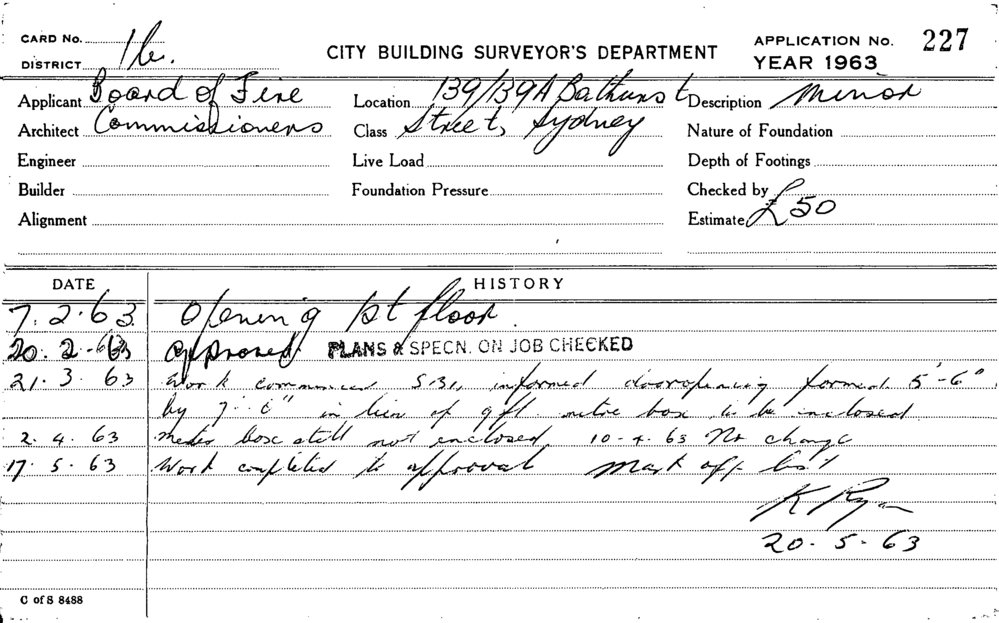 CARD No. 16.
DISTRICT
CITY BUILDING SURVEYOR'S DEPARTMENT
APPLICATION No. 227
YEAR 1963
Applicant Board of Fire
Location 139/139A Bathurst
Description Minor
Architect Commissioners
Class Street, Sydney
Nature of Foundation
Engineer
Live Load
Depth of Footings
Builder
Foundation Pressure
Checked by
Alignment
Estimate £50
DATE HISTORY
7.2.63 Opening 1st floor.
20.2.63 Approved PLANS & SPECN. ON JOB CHECKED
21.3.63 Work commenced informed dooropening formed 5'-6"
by 7'6" in lieu of 9ft. metre box to be inclosed
2.4.63 meter box still not enclosed. 10-4-63 No change
17.5.63 Work completed to approval mark off
K Ryan
20-5-63
C of S 8488